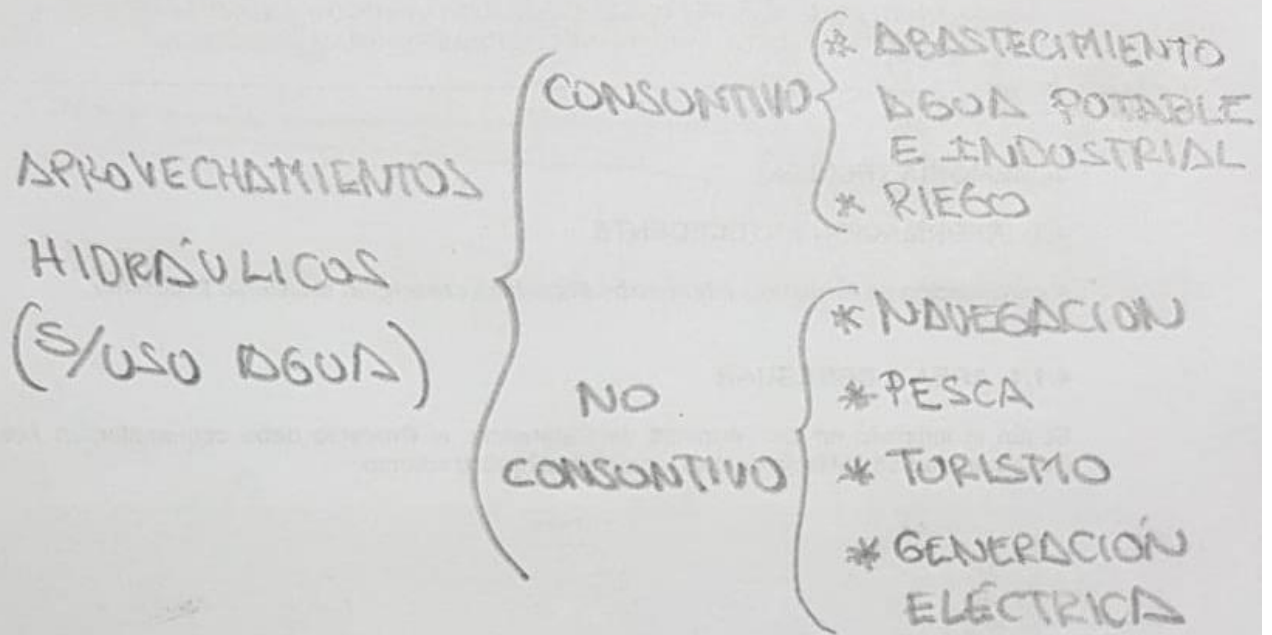 APROVECHAMIENTOS
HIDRÁULICOS
(S/USO AGUA)
CONSUNTIVO
* ABASTECIMIENTO
AGUA POTABLE
E INDUSTRIAL
* RIEGO
NO
CONSUNTIVO
* NAVEGACIÓN
* PESCA
* TURISMO
* GENERACIÓN
ELÉCTRICA